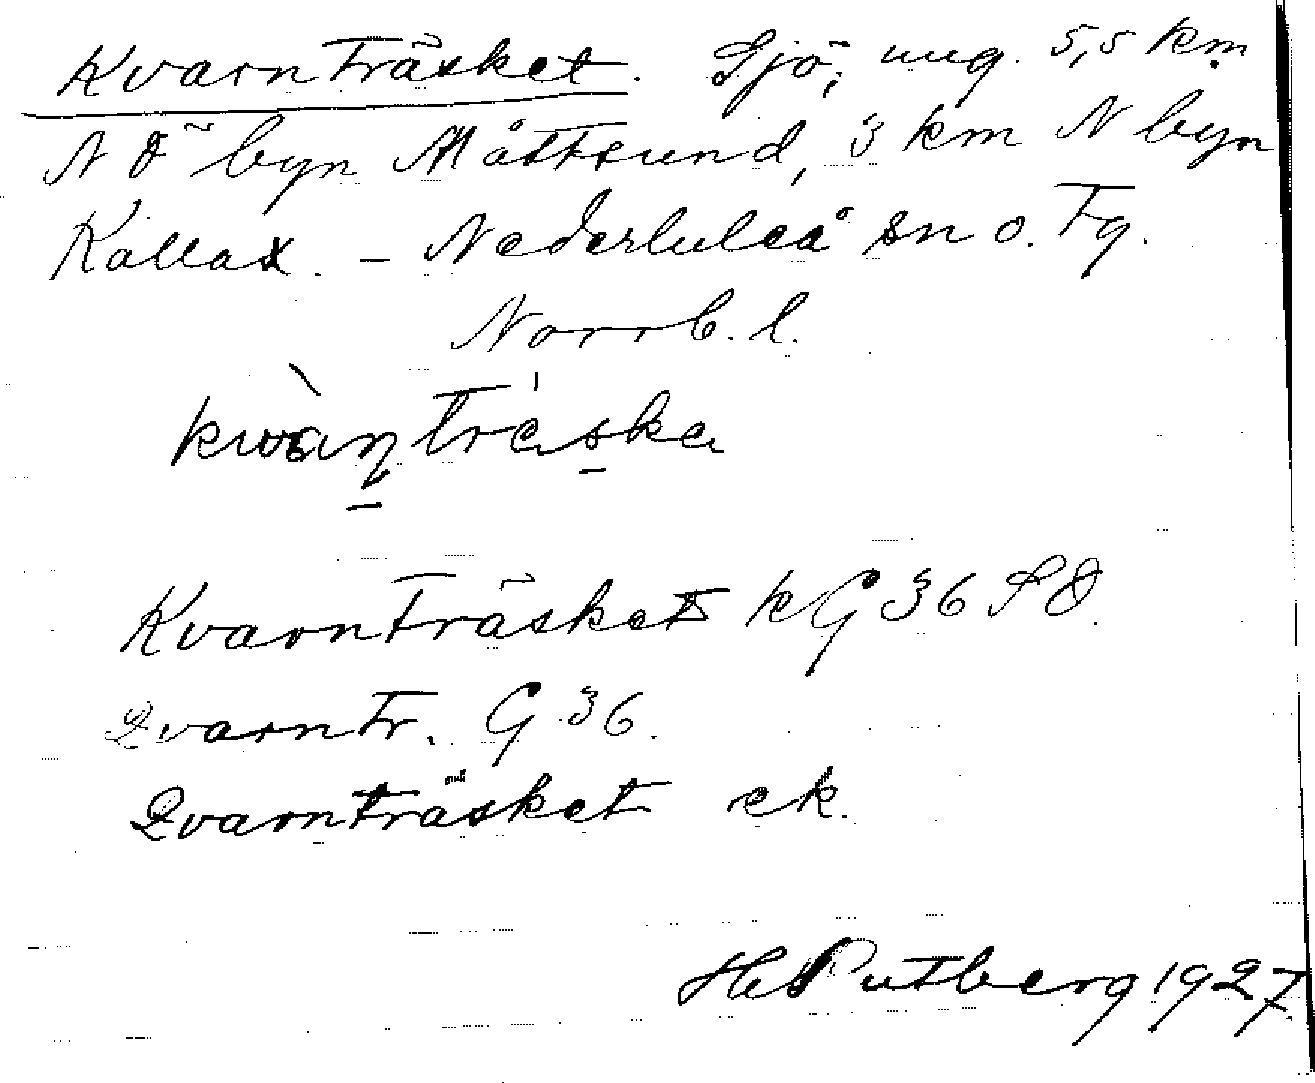 Kvarnträsket. Sjö, ung. 5,5 km
NÖ byn Måttsund, 3 km N byn
Kallax. – Nederluleå sn o. Tg.
Norrb. l.
Kvarnträsket KG 36 SO.
Qvarntr. G 36.
Qvarnträsket ek.
Rutberg 1927